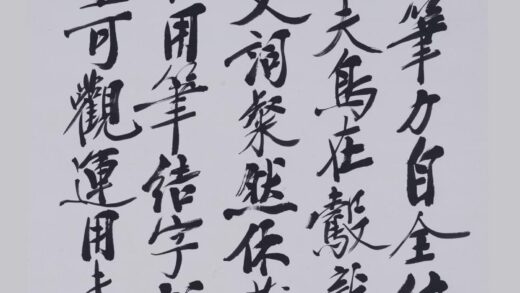 筆力自全
夫鳥在鷇
文詞粲然保
用筆結字
可觀運用